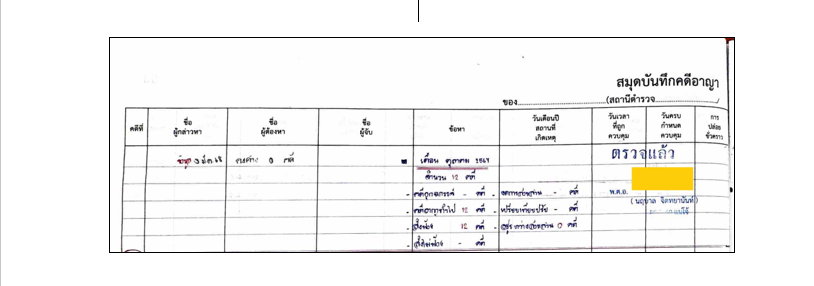 สมุดบันทึกคดีอาญา
ของ (สถานีตำรวจ
คดีที่ ชื่อ ผู้กล่าวหา ชื่อ ผู้ต้องหา ชื่อ ผู้จับ ข้อหา วันเดือนปี สถานที่ เกิดเหตุ วันเวลา ที่ถูก ควบคุม วันครบ กำหนด ควบคุม การ ปล่อย ชั่วคราว
เดือน ตุลาคม ตรวจแล้ว
จำนวน 12 คดี
- คดีอุกฉกรรจ์ - คดี - คดี พ.ต.อ.
- คดีอาญาทั่วไป 12 คดี - เปรียบเทียบปรับ - คดี
- สั่งฟ้อง 12 คดี - อยู่ระหว่างสอบสวน 0 คดี
- สั่งไม่ฟ้อง - คดี